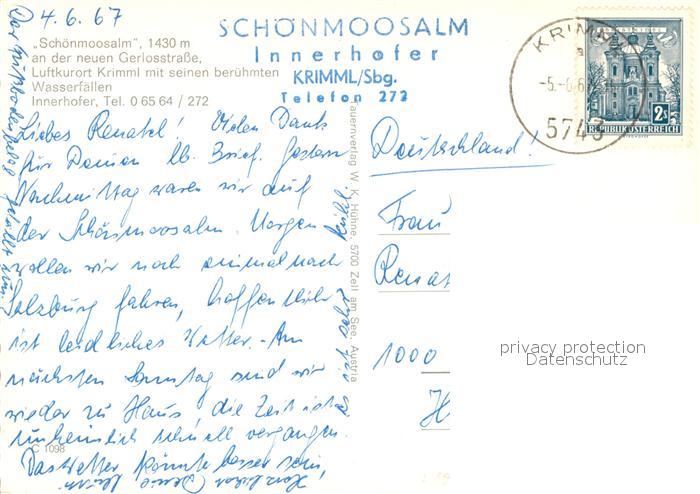 4.6.67
SCHÖNMOOSALM
Innerhofer
KRIMML/Sbg.
Telefon 272
„Schönmoosalm", 1430 m
an der neuen Gerlosstraße,
Luftkurort Krimml mit seinen berühmten
Wasserfällen
Innerhofer, Tel. 0 65 64 / 272
KRIMML
5743
2 S
REPUBLIK ÖSTERREICH
Liebes Renatel! Vielen Dank
für Deinen lb. Brief. Gestern
Nachmittag waren wir auf
der Schönmoosalm. Morgen
wollen wir noch einmal nach
Salzburg fahren, hoffentlich
ist leidliches Wetter. - Am
nächsten Sonntag sind wir
wieder zu Haus, die Zeit ist
unheimlich schnell vergangen.
Das Wetter könnte besser sein,
es ist sehr kühl.
Der Fußbodenbelag gefällt mir
Tauernverlag W. K. Hühne, 5700 Zell am See, Austria
C 1098
Deutschland!
Frau
Renat
1000
H
privacy protection
Datenschutz